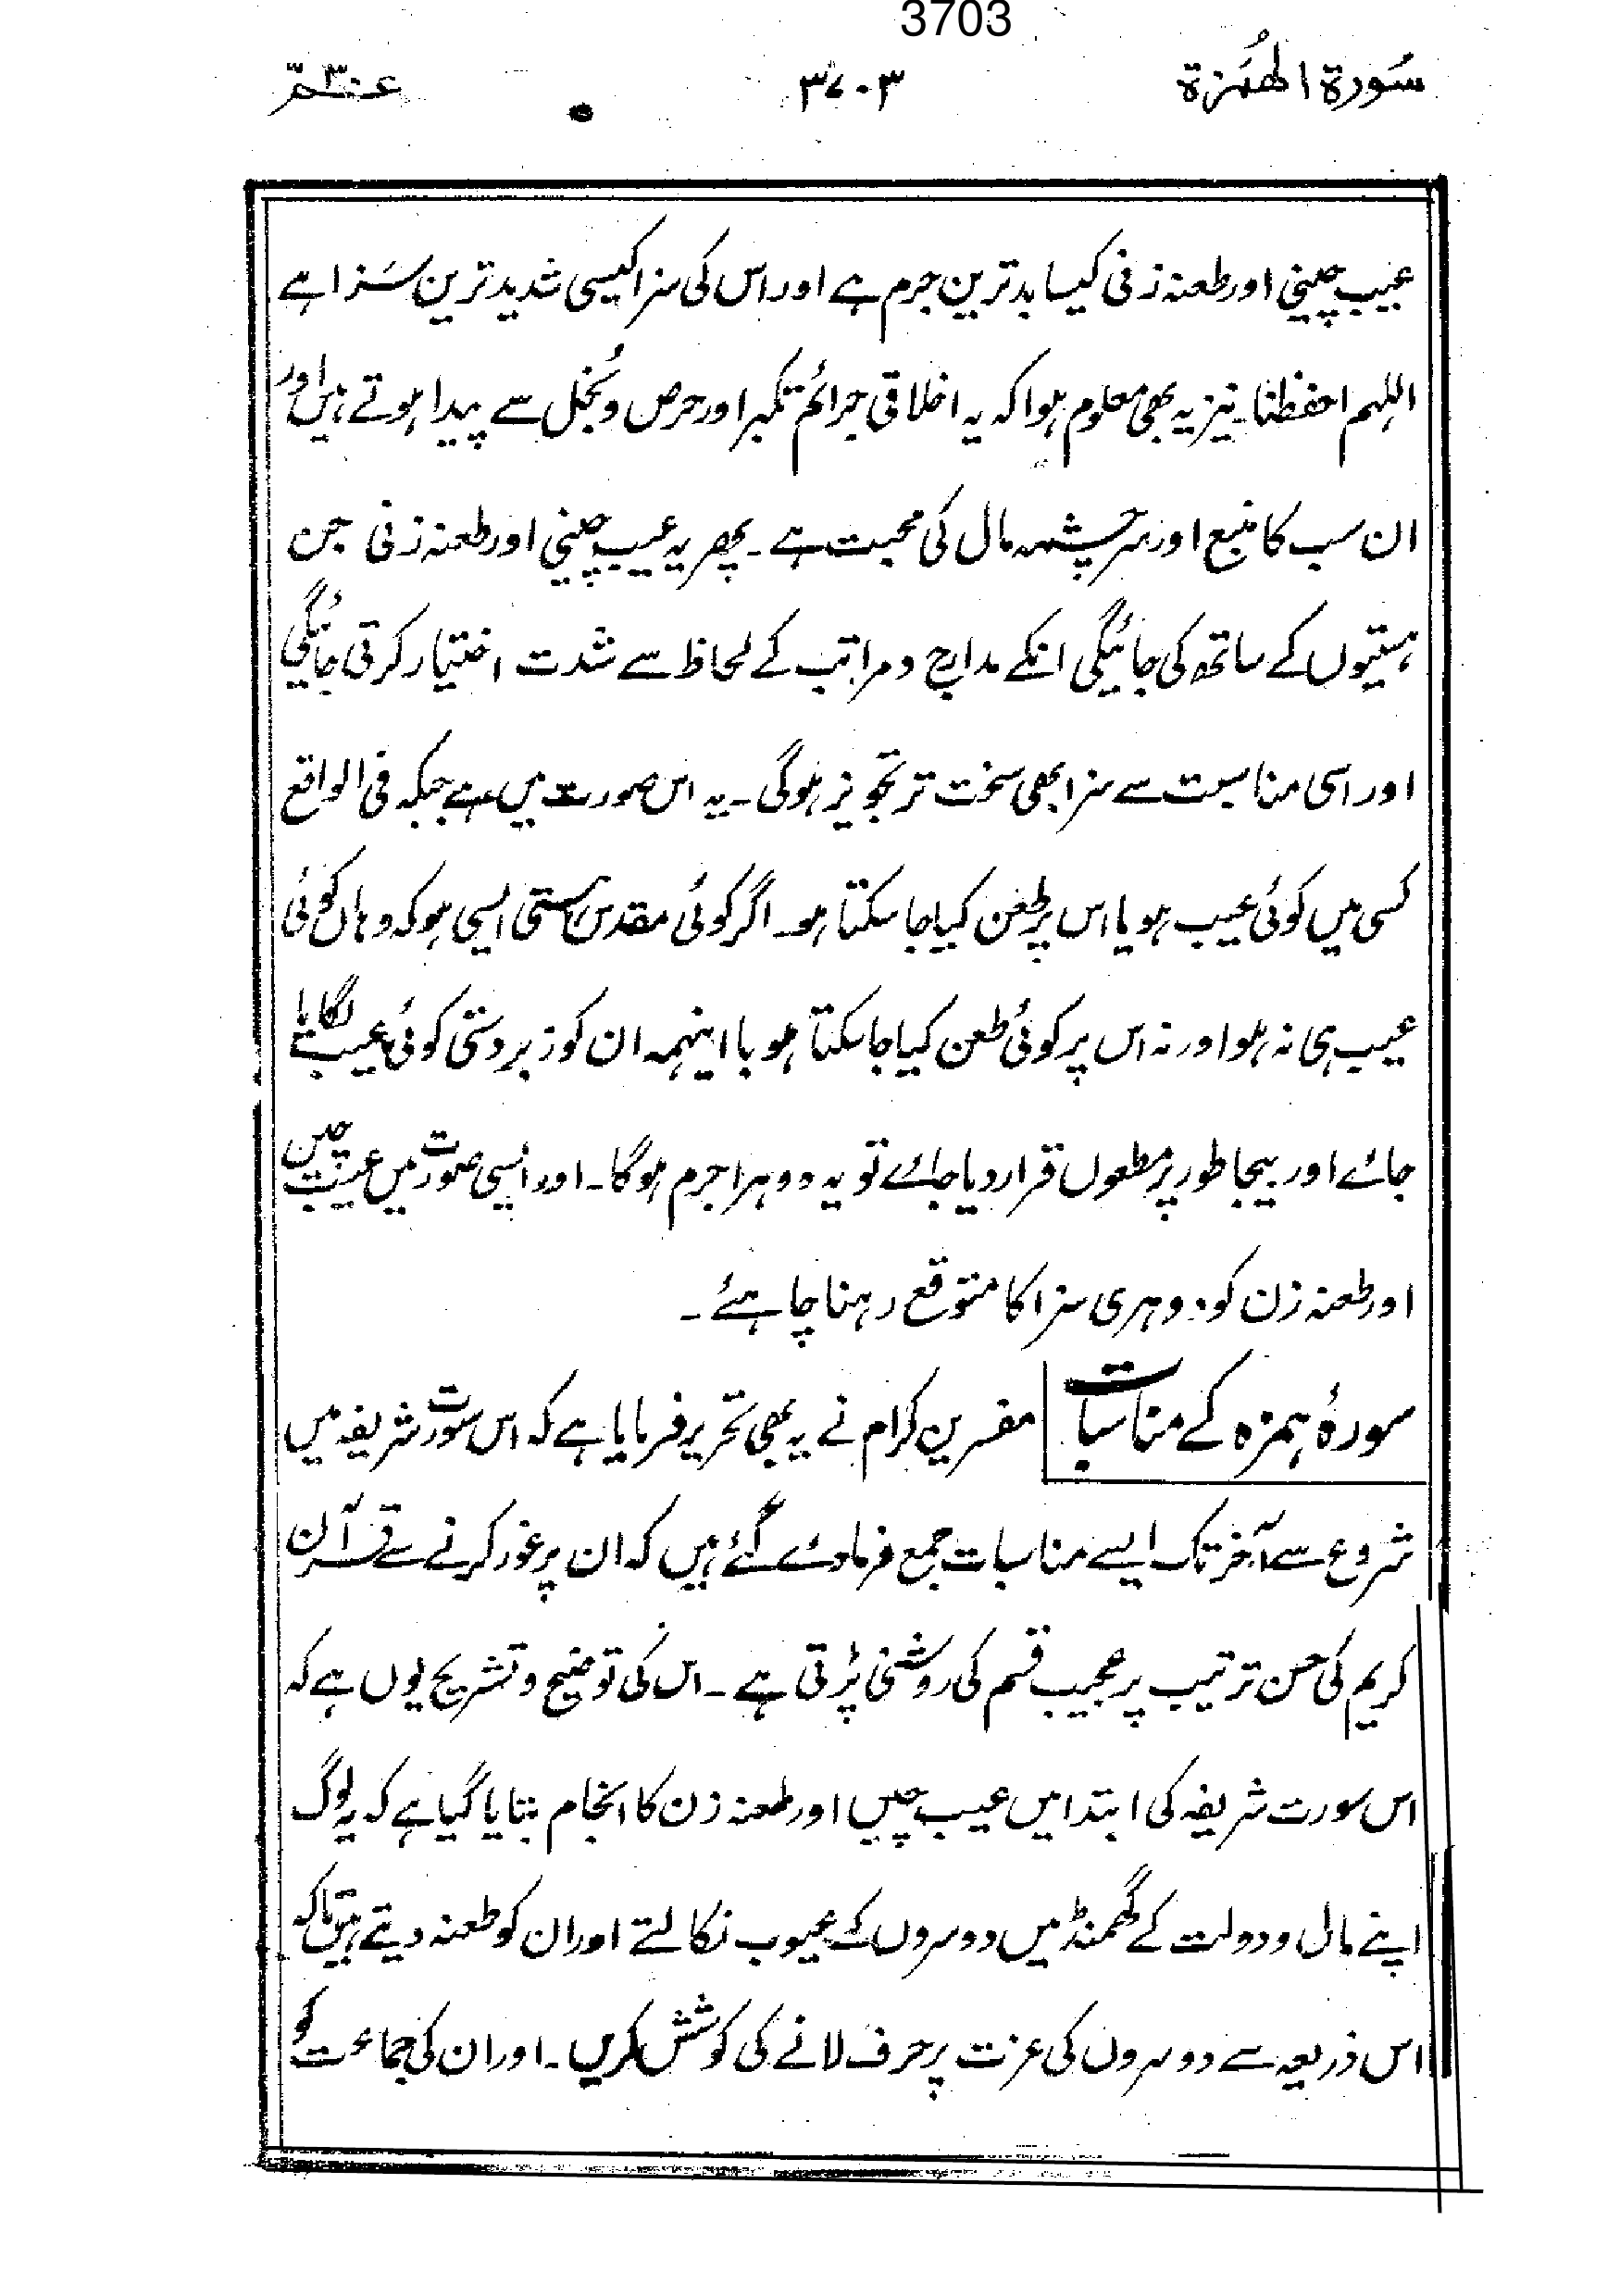 3703
سُورۃ الھُمَزۃ ۳۷۰۳ عمّ ۳۰
عیب چینی اور طعنہ زنی کیسا بدترین جرم ہے اور اس کی سزا کیسی شدید ترین سَزا ہے
اللہم احفظنا۔ نیز یہ بھی معلوم ہوا کہ یہ اخلاقی جرائم تکبر اور حرص و بُخل سے پیدا ہوتے ہیں اور
ان سب کا منبع اور سرچشمہ مال کی محبت ہے۔ پھر یہ عیب چینی اور طعنہ زنی جن
ہستیوں کے ساتھ کی جائیگی انکے مدارج و مراتب کے لحاظ سے شدت اختیار کرتی جائیگی
اور اسی مناسبت سے سزا بھی سخت تر تجویز ہوگی۔ یہ اس صورت میں ہے جبکہ فی الواقع
کسی میں کوئی عیب ہو یا اس پر طعن کیا جا سکتا ہو۔ اگر کوئی مقدس ہستی ایسی ہو کہ وہاں کوئی
عیب ہی نہ ہو اور نہ اس پر کوئی طعن کیا جا سکتا ہو با اینہمہ ان کو زبردستی کوئی عیب لگایا
جائے اور بیجا طور پر مطعون قرار دیا جائے تو یہ دوہرا جرم ہوگا۔ اور ایسی صورت میں عیب چیں
اور طعنہ زن کو دوہری سزا کا متوقع رہنا چاہئے۔
سورۂ ہمزہ کے مناسبات مفسرین کرام نے یہ بھی تحریر فرمایا ہے کہ اس سورت شریفہ میں
شروع سے آخر تک ایسے مناسبات جمع فرمادئے گئے ہیں کہ ان پر غور کرنے سے قرآن
کریم کی حسن ترتیب پر عجیب قسم کی روشنی پڑتی ہے۔ اس کی توضیح و تشریح یوں ہے کہ
اس سورت شریفہ کی ابتدا میں عیب چیں اور طعنہ زن کا انجام بتایا گیا ہے کہ یہ لوگ
اپنے مال و دولت کے گھمنڈ میں دوسروں کے عیوب نکالتے اور ان کو طعنہ دیتے ہیں تاکہ
اس ذریعہ سے دوسروں کی عزت پر حرف لانے کی کوشش کریں۔ اور ان کی جماعت کو